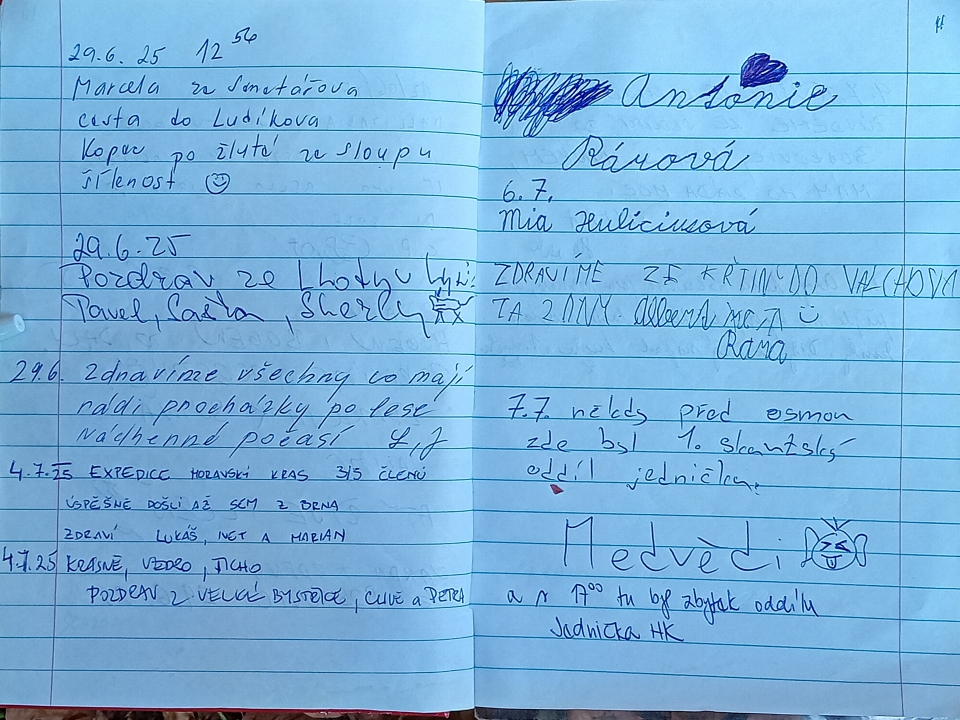 29.6. 25 12 56
Marcela ze Senetářova
cesta do Ludíkova
Kopec po žluté ze Sloupu
šílenost
29.6.25
Pozdrav ze Lhoty u
Pavel, Saša, Sherly
29.6. Zdravíme všechny co mají
rádi procházky po lese
Nádherné počasí L, J
4.7.25 EXPEDICE MORAVSKÝ KRAS 3/5 ČLENŮ
ÚSPĚŠNĚ DOŠLI AŽ SEM Z BRNA
ZDRAVÍ LUKÁŠ, NET A MARIAN
4.7.25 KRÁSNĚ, VEDRO, TICHO
POZDRAV Z VELKÉ BYSTŘICE, a PETRA
Antonie
Rárová
6.7.
Mia
ZDRAVÍME ZE KŘTIN DO VALCHOVA
TA ZIMY.
Rára
7.7. někdy před osmou
zde byl 1. skautský
oddíl jednička.
Medvědi
a v 17 00 tu byl zbytek oddílu
Jednička HK